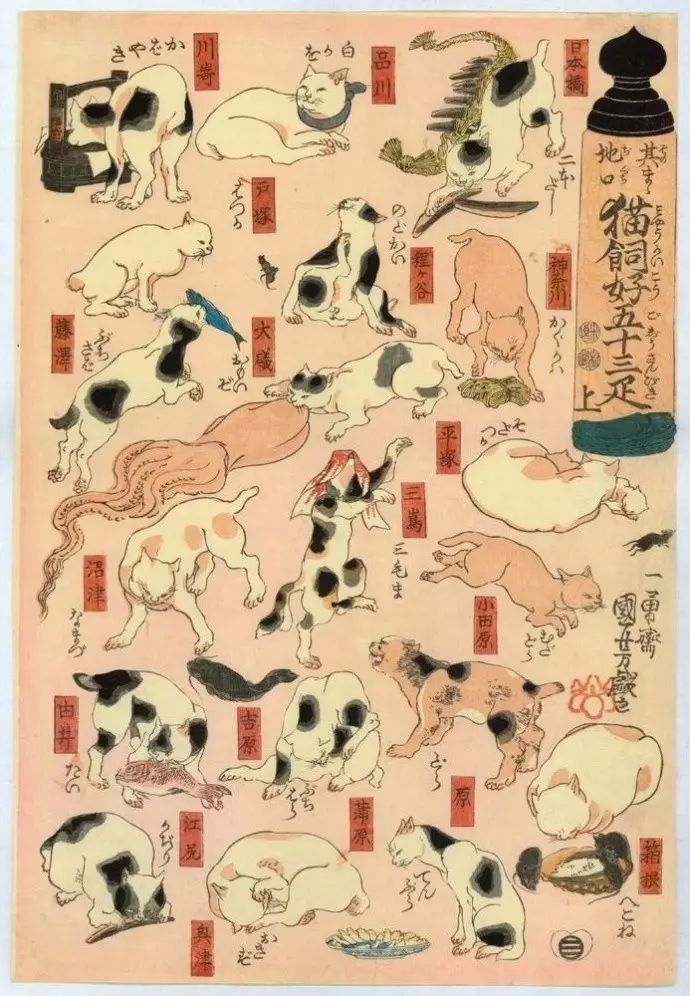 其まゝ
地口
猫飼好五十三疋
上
日本橋
二本だし
品川
白かを
川嵜
かばやき
神奈川
かぐかハ
程ヶ谷
のどかい
戸塚
はつか
藤澤
ぶちさば
平塚
そだつか
大礒
おもいぞ
小田原
むだどら
箱根
へこね
三嶌
三毛ま
沼津
なまづ
原
どら
吉原
ぶちはら
蒲原
てんぷら
由井
たい
江尻
かぢり
奥津
おきず
一勇齋
國芳